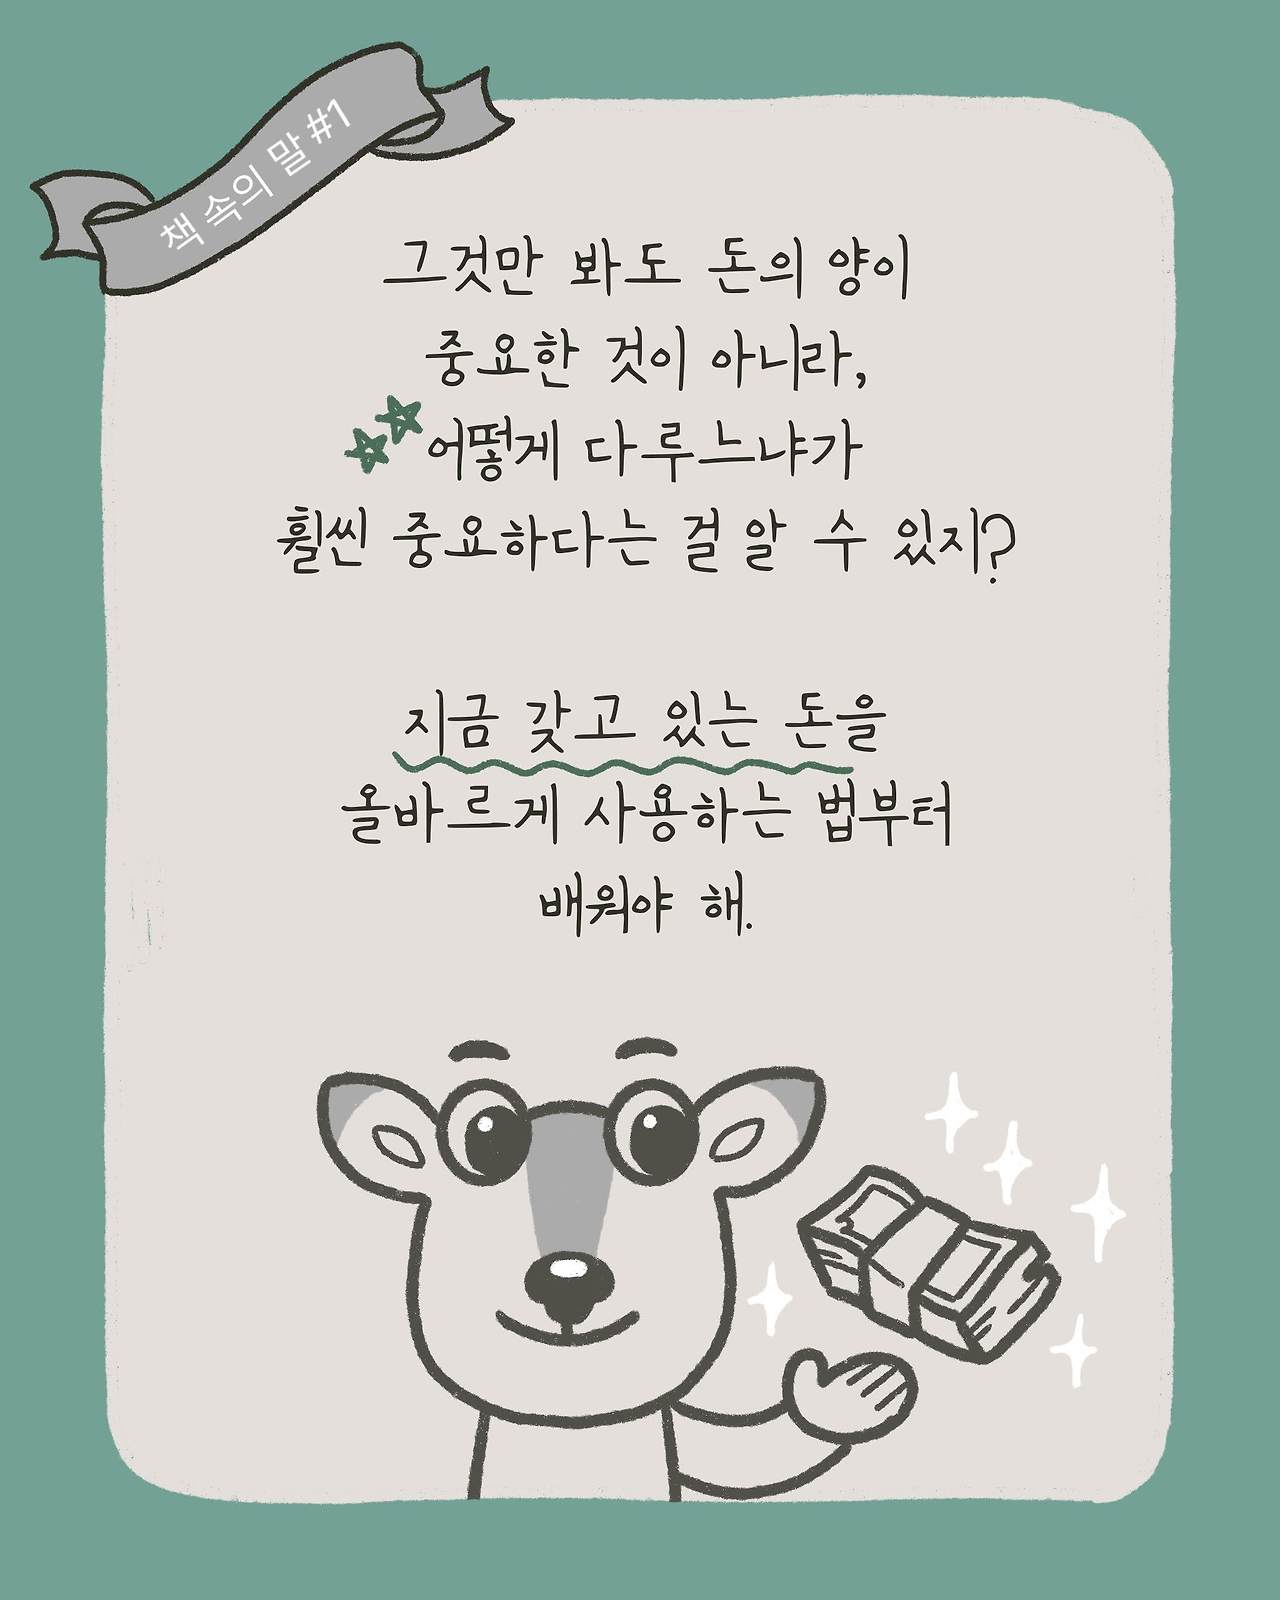 책 속의 말 #1
그것만 봐도 돈의 양이
중요한 것이 아니라,
어떻게 다루느냐가
훨씬 중요하다는 걸 알 수 있지?
지금 갖고 있는 돈을
올바르게 사용하는 법부터
배워야 해.